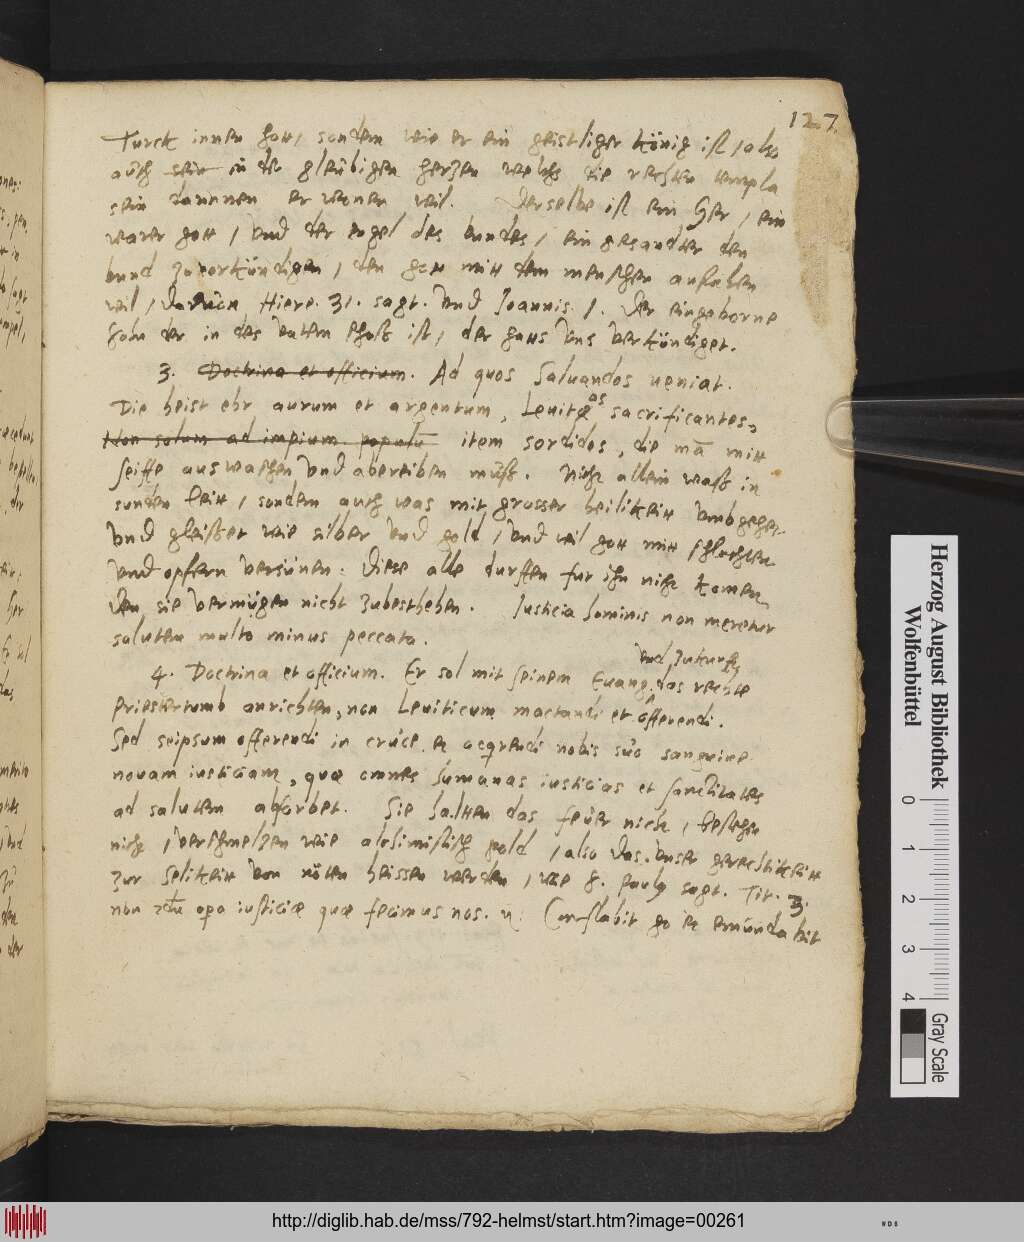 127.
Turck innen hott, sondern wie er ein geistliger könig ist, also
auch sein in der gleübigen hertzen welchs die rechten templa
sein darinnen er wonen wil. Derselbe ist ein Her, ein
warer gott, vnd der engel des bundes, ein gesandter den
bund zuvorkündigen, den gott mitt dem menschen aufrichten
wil, Dauon Hiere. 31. sagt. vnd Joannis. 1. Der eingeborne
sohn der in des vatern schoß ist, der hatts vns verkündiget.
3. Doctrina et officium. Ad quos saluandos ueniat.
Die heist ehr aurum et argentum, Leuitas sacrificantes,
Non solum ad impium populū item sordidos, die mā mitt
seiffe auswaschen vnd abereiben müß. nicht allein waß in
sunden leitt, sondern auch was mit grosser heilikeitt vmbgehet
vnd gleißet wie silber vnd gold, vnd wil gott mitt schlachten
vnd opfern versünen: Diese alle durffen fur ihn nicht komen
Den sie vermügen nicht zubesthehen. Iusticia hominis non meretur
salutem multo minus peccata.
vnd zukunfft
4. Doctrina et officium. Er sol mit seinem Euang. das rechte
priestertumb anrichten, non Leuiticum mactandi et offerendi.
Sed seipsum offerendi in cruce et acqrendi nobis suo sanguine
nouam iusticiam, quæ omnes humanas iusticias et sanctitates
ad salutem absorbet. Sie haltten das feüer nicht, bestehen
nicht, verschmeltzen wie alchimistisch gold, also das vnser gerechtikeitt
zur selikeitt von nöten heissen werden, wie S. Paulq sagt. Tit. 3.
non opa iusticiæ quæ fecimus nos. Conflabit go et emundabit
Herzog August Bibliothek
Wolfenbüttel
0 1 2 3 4
Gray Scale
http://diglib.hab.de/mss/792-helmst/start.htm?image=00261